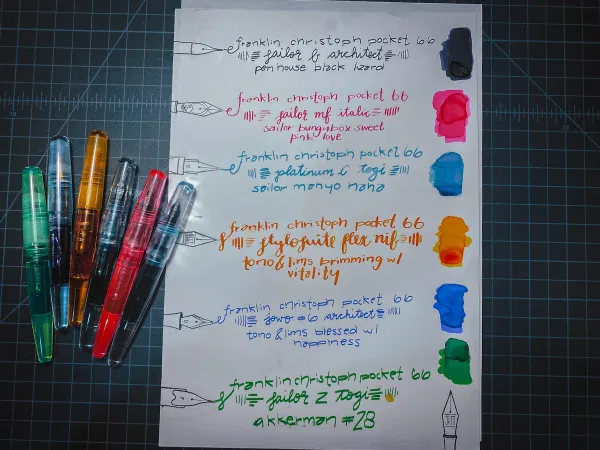 franklin christoph pocket 66
sailor b architect
penhouse black lizard
franklin christoph pocket 66
sailor mf italic
sailor bungubox sweet
pink love
franklin christoph pocket 66
platinum b togi
sailor manyo haha
franklin christoph pocket 66
stylosuite flex nib
tono & lims brimming w/
vitality
franklin christoph pocket 66
jowo #6 architect
tono & lims blessed w/
happiness
franklin christoph pocket 66
sailor z togi
akkerman #28